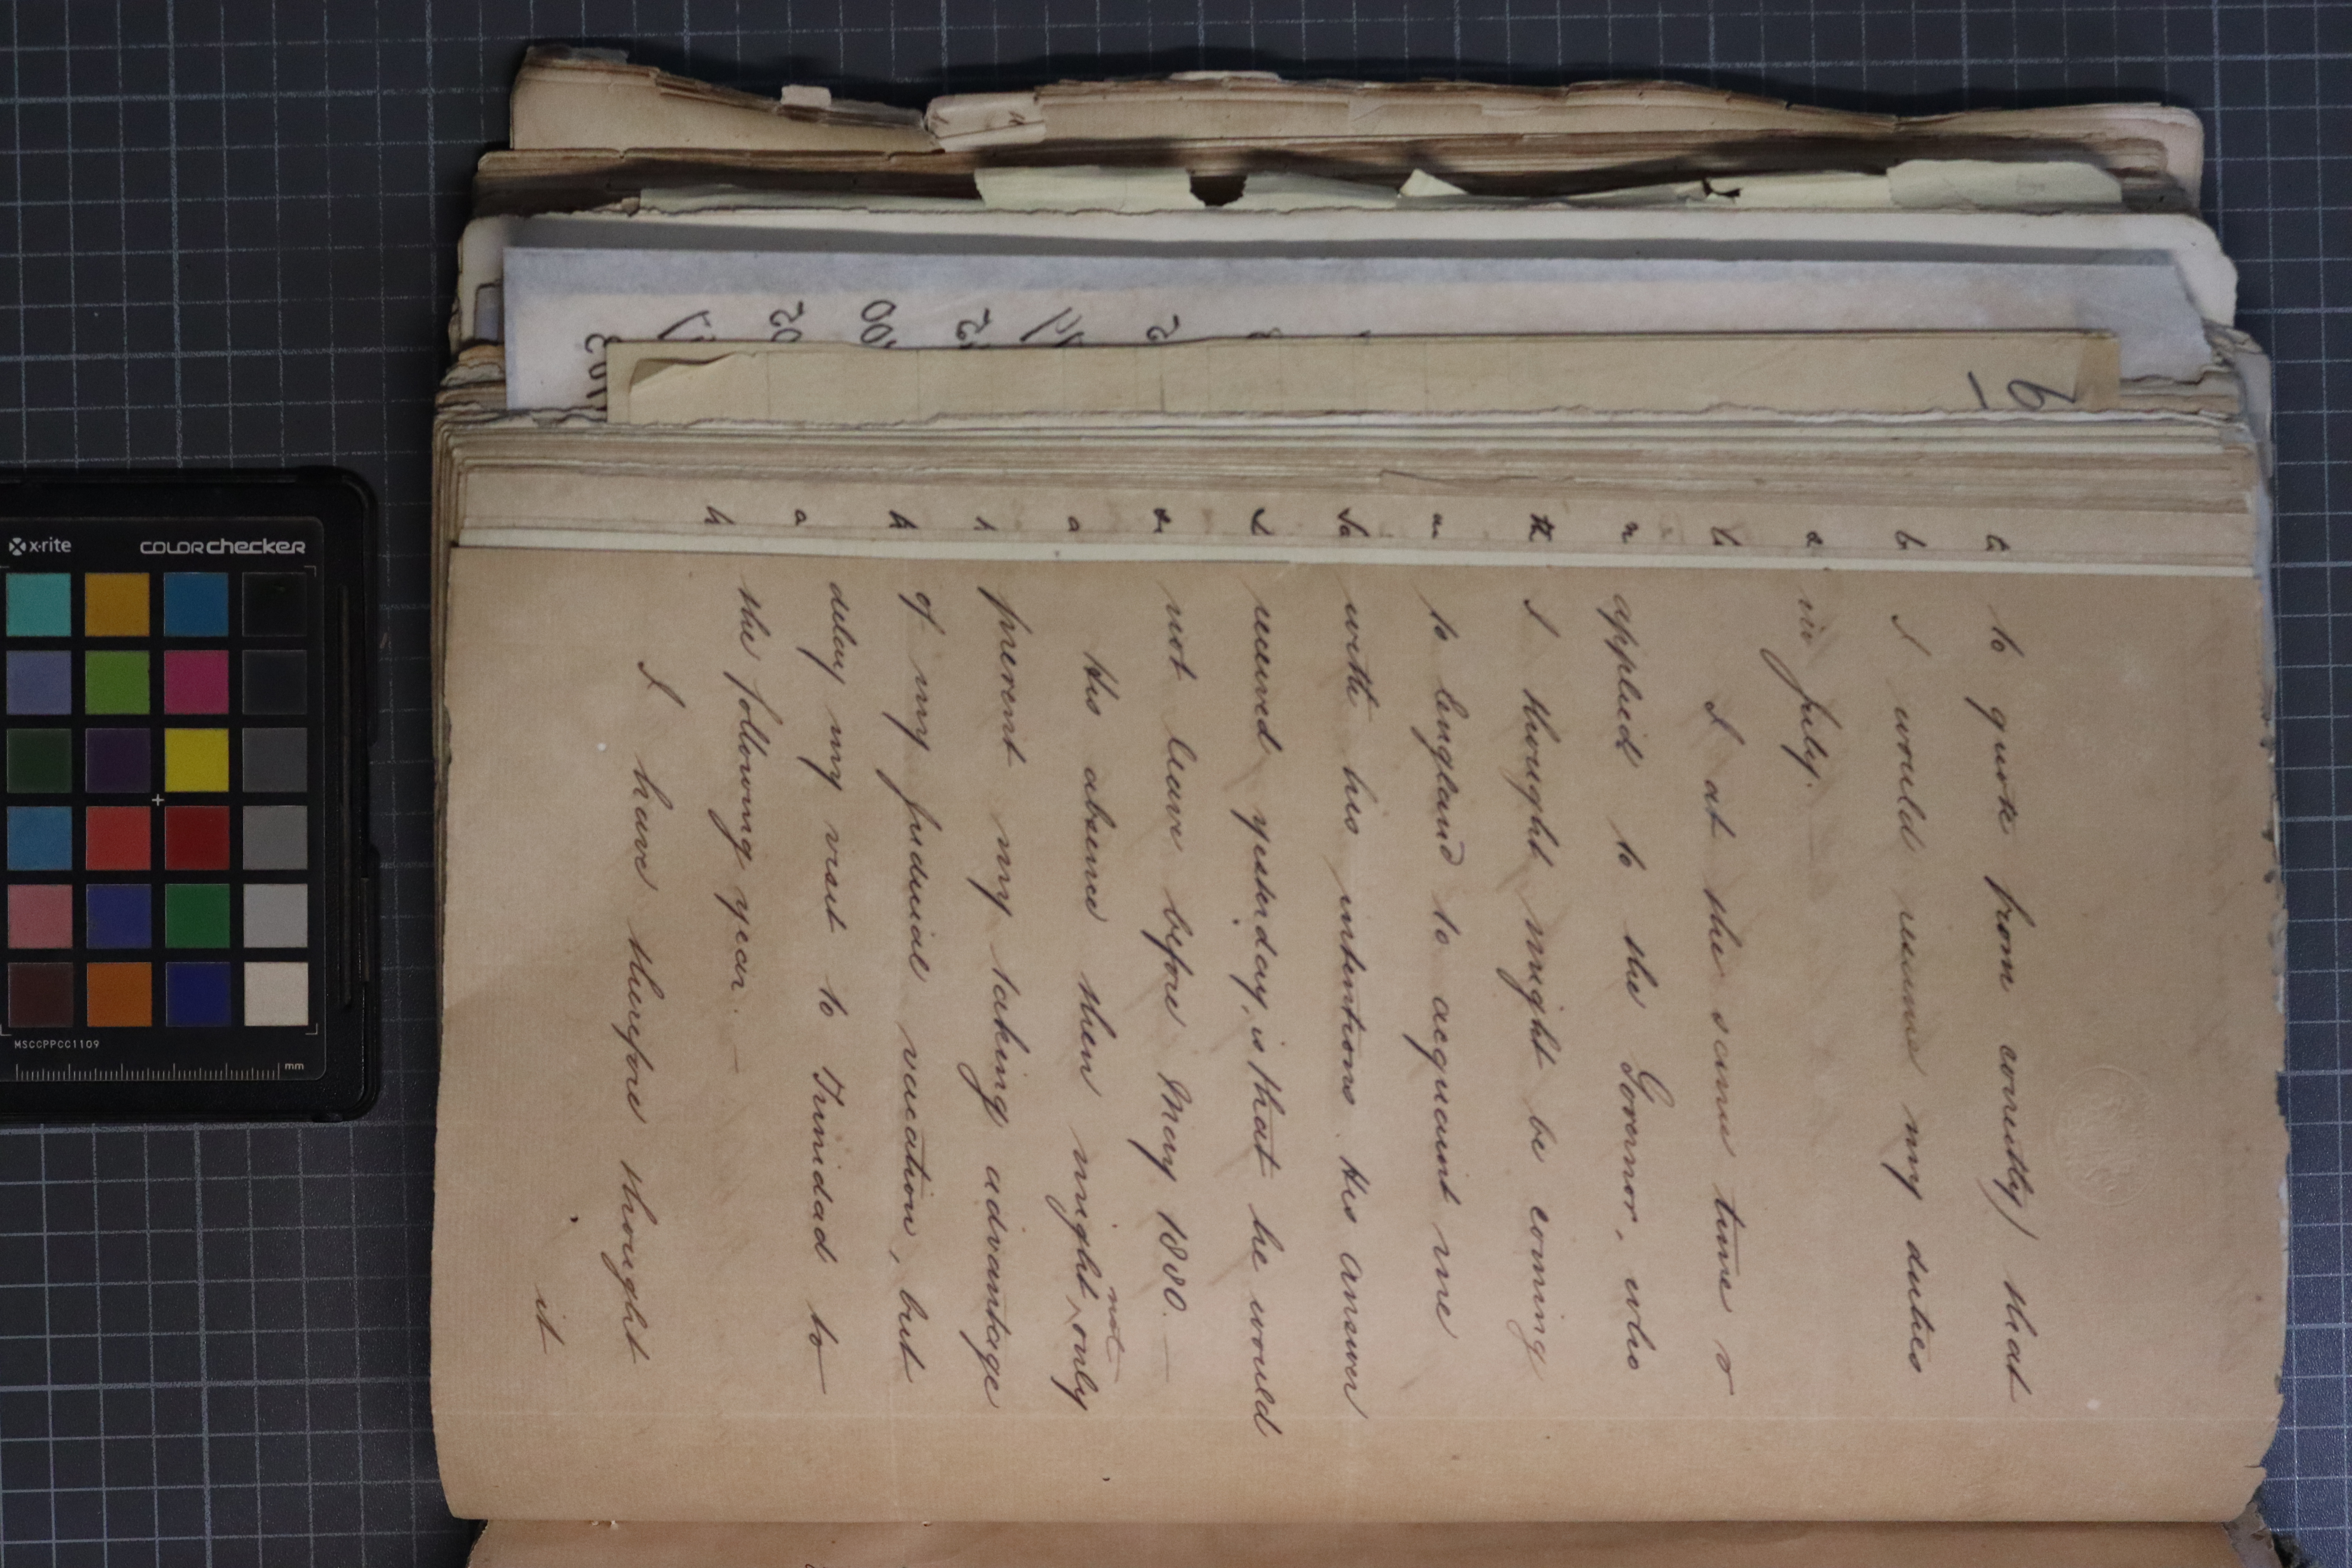 to quote from correctly) that
I would resume my duties
in July.
I at the same time
applied to the Governor, who
I thought might be coming
to England to acquaint me
with his intentions. His answer
received yesterday, is that he would
not leave before May 1880. —
His absence then might not only
prevent my taking advantage
of my judicial vacation, but
delay my visit to Trinidad to
the following year. —
I have therefore thought
it
x-rite
COLORchecker
MSCCPPCC1109
mm